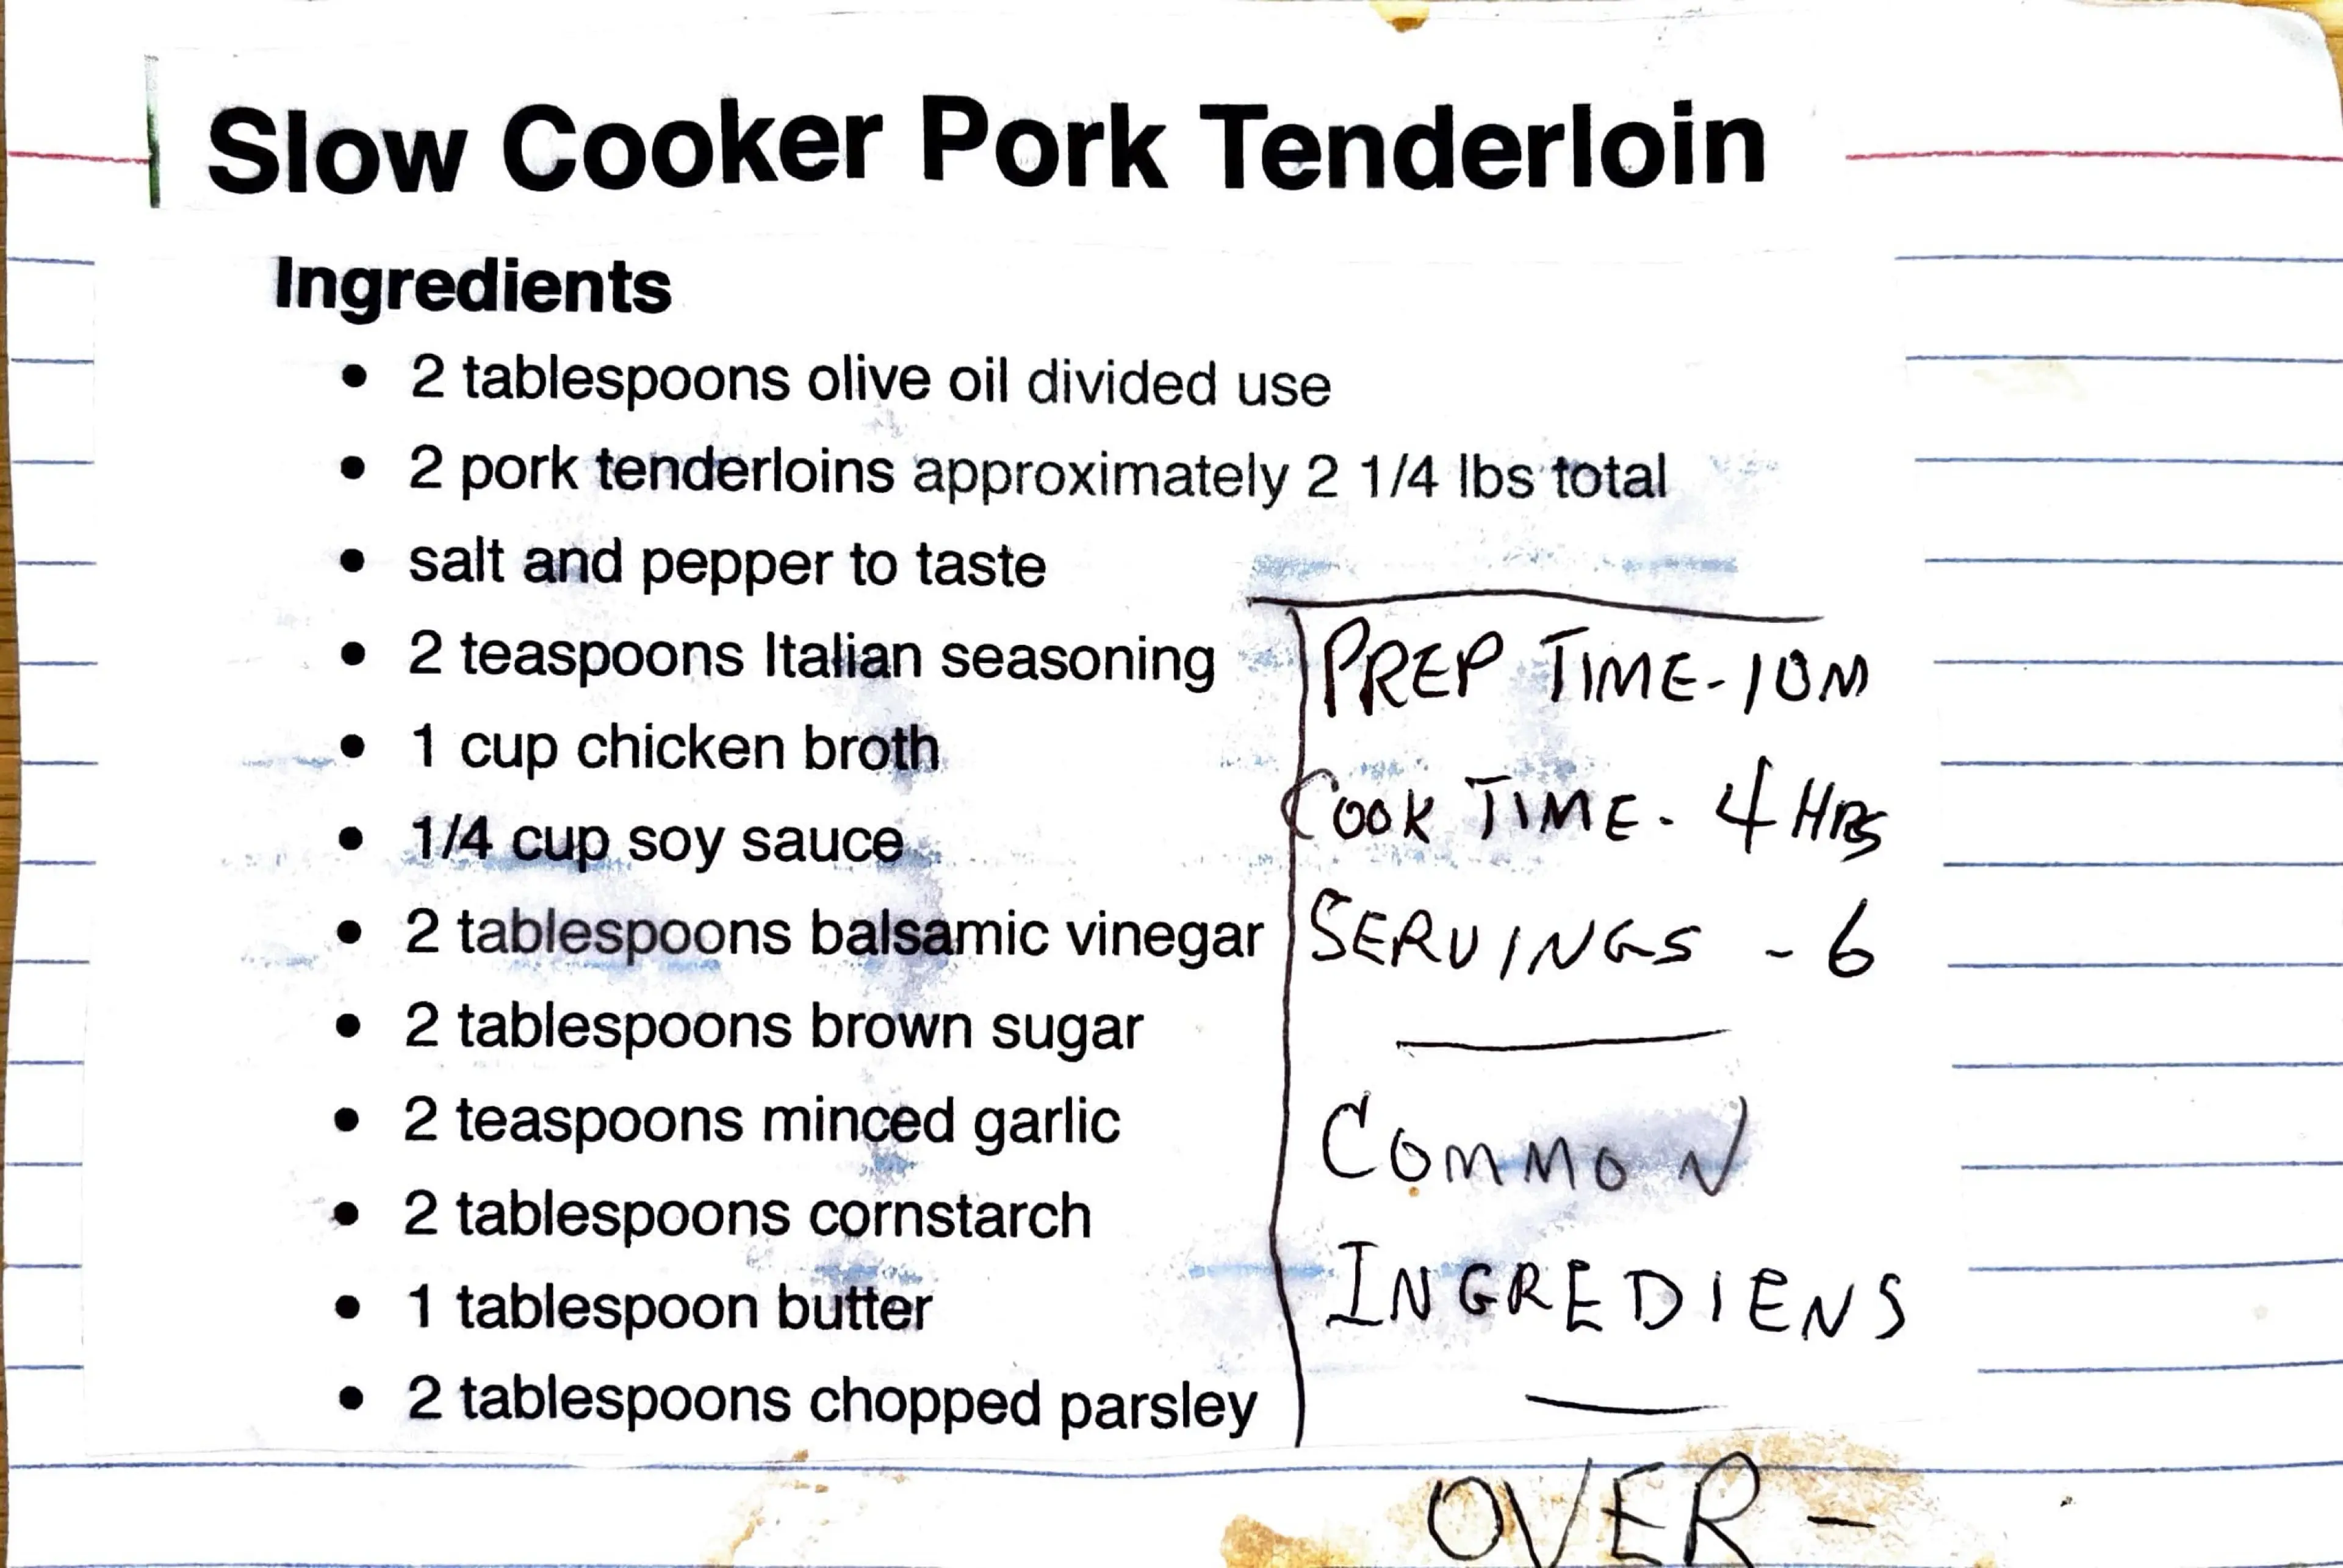 Slow Cooker Pork Tenderloin
Ingredients
• 2 tablespoons olive oil divided use
• 2 pork tenderloins approximately 2 1/4 lbs total
• salt and pepper to taste
• 2 teaspoons Italian seasoning
• 1 cup chicken broth
• 1/4 cup soy sauce
• 2 tablespoons balsamic vinegar
• 2 tablespoons brown sugar
• 2 teaspoons minced garlic
• 2 tablespoons cornstarch
• 1 tablespoon butter
• 2 tablespoons chopped parsley
PREP TIME - 10M
COOK TIME - 4 HRS
SERVINGS - 6
COMMON
INGREDIENS
OVER -